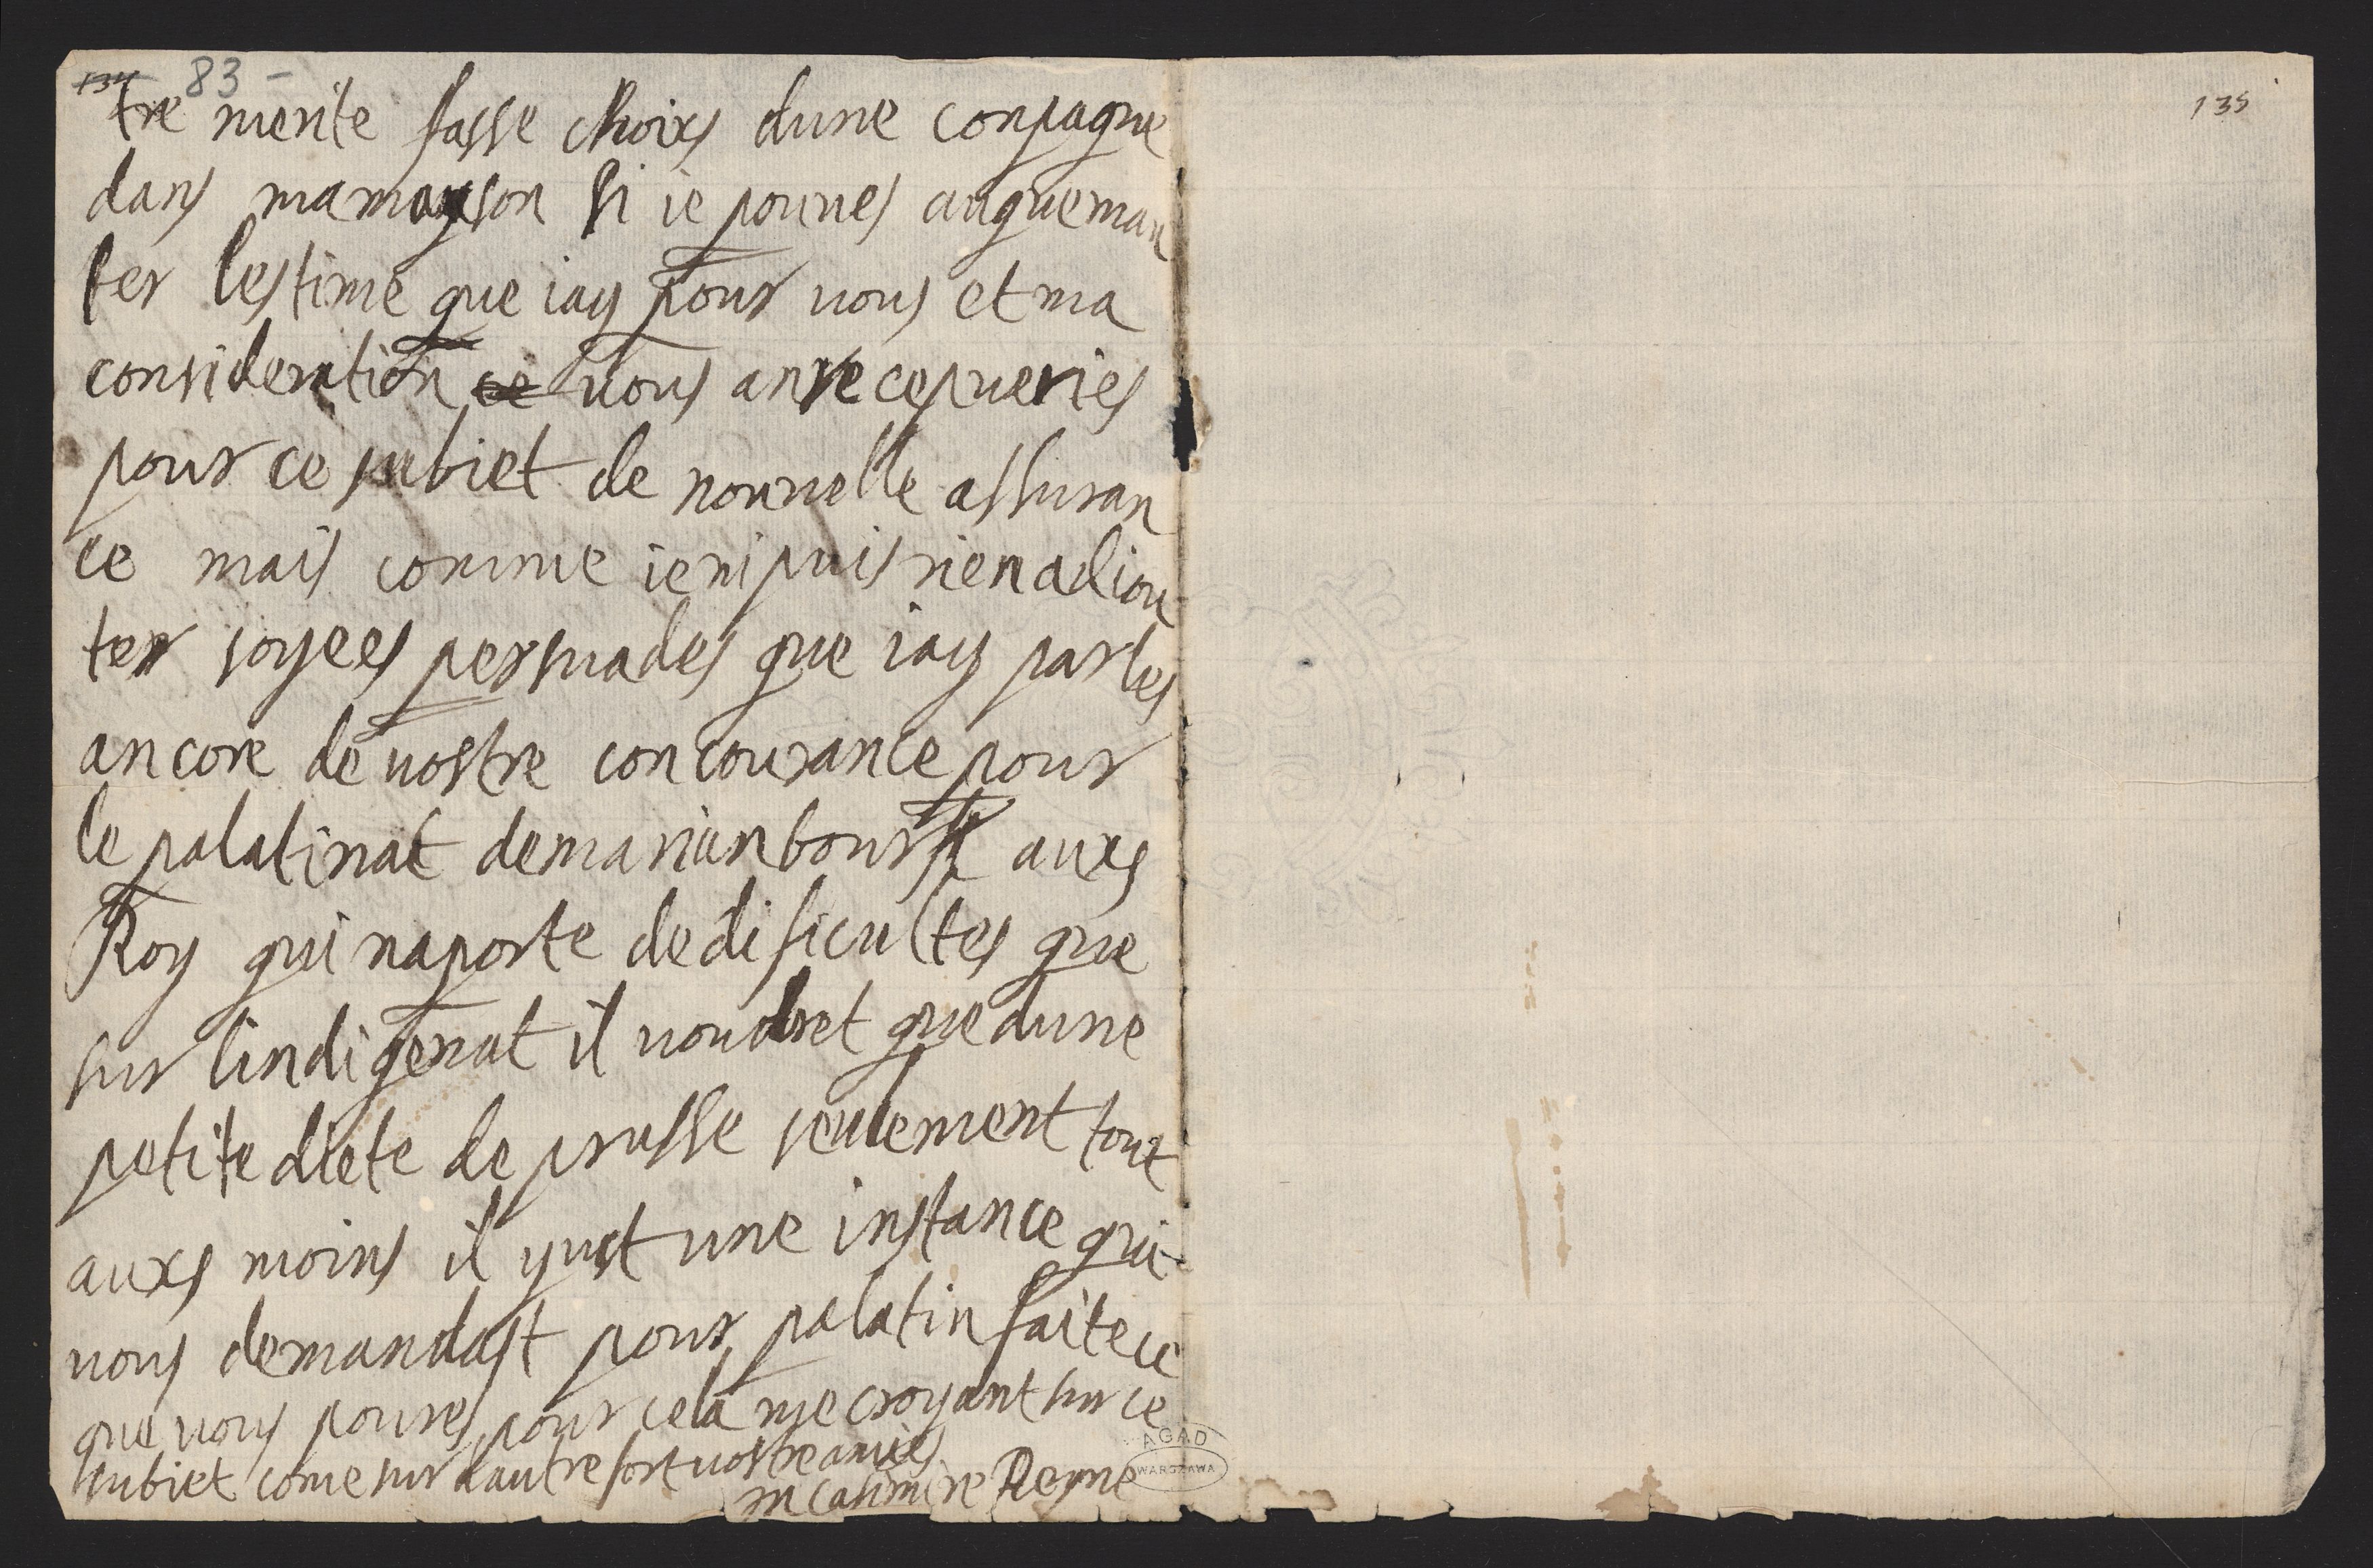 134 83 -
tre merite fasse choixs dune conpagne
dans mamayson si ie pouues augueman
ter lestime que iay pour uous et ma
consideration ce uous anrecepueries
pour ce subiet de nouuelle assuran
ce mais comme ieni puis rien adiou
ter soyees persuades que iay parles
ancore de uostre concourance pour
le palatinat demarianbourk auxs
Roy qui naporte dedificultes que
sur lindigenat il uoudret que dune
petite diete de prusse seulement tout
auxs moins il yust une instance qui
uous demandast pour palatin faite ce
que uous poures pour cela me croyant sur ce
subiet come sur dautre fort uostre amies
m casimire Reyne
135
AGAD
WARSZAWA